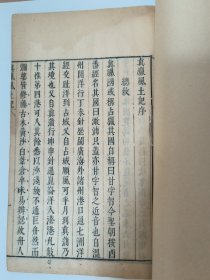 真臘風土記序
總敘
真臘國或稱占臘其國自稱曰甘孛智今聖朝按西
番經名其國曰澉浦只蓋亦甘孛智之近音也自溫
州開洋行丁未針歷閩廣海外諸州港口過七洲洋
經交趾洋到占城又自占城順風可半月到真蒲乃
其境也又自真蒲行坤申針過崑崙洋入港港凡數
十惟第四港可入其餘悉以沙淺故不通巨舟然而
彌望皆修藤古木黃沙白葦倉卒未易辨認故舟人
真臘風土記